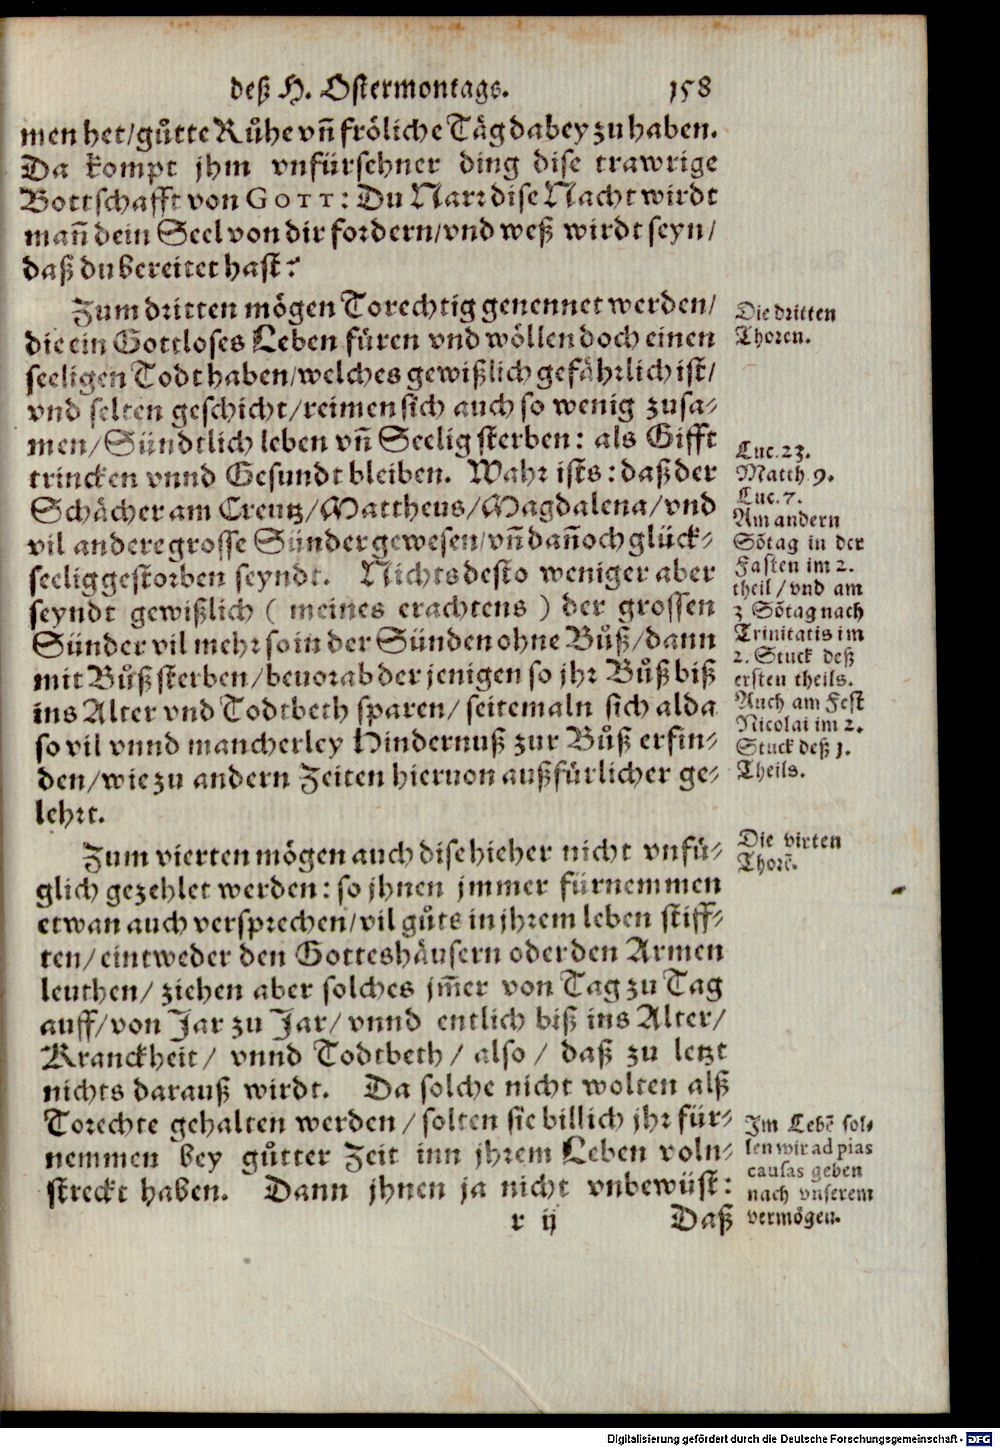 deß H. Ostermontags. 158
men het/gůtte Růhe vñ fröliche Täg dabey zu haben.
Da kompt jhm vnfürsehner ding dise trawrige
Bottschafft von GOTT: Du Narr dise Nacht wirdt
mañ dein Seel von dir fordern/vnd weß wirdt seyn/
daß du bereitet hast?
Zum dritten mögen Torechtig genennet werden/
die ein Gottloses Leben füren vnd wöllen doch einen
seeligen Todt haben/welches gewißlich gefährlich ist/
vnd selten geschicht/reimen sich auch so wenig zusa-
men/Sündtlich leben vñ Seelig sterben: als Gifft
trincken vnnd Gesundt bleiben. Wahr ists: daß der
Schächer am Creutz/Mattheus/Magdalena/vnd
vil andere grosse Sünder gewesen/vñ dañoch glück-
seelig gestorben seyndt. Nichts desto weniger aber
seyndt gewißlich ( meines erachtens ) der grossen
Sünder vil mehr so in der Sünden ohne Bůß/dann
mit Bůß sterben/beuorab der jenigen so jhr Bůß biß
ins Alter vnd Todtbeth sparen/ seitemaln sich alda
so vil vnnd mancherley Hindernuß zur Bůß erfin-
den/wie zu andern Zeiten hieruon außfürlicher ge-
lehrt.
Zum vierten mögen auch dise hieher nicht vnfü-
glich gezehlet werden: so jhnen jmmer fürnemmen
etwan auch versprechen/vil gůts in jhrem leben stiff-
ten/eintweder den Gotteshäusern oder den Armen
leuthen/ ziehen aber solches jm̃er von Tag zu Tag
auff/von Jar zu Jar/ vnnd entlich biß ins Alter/
Kranckheit/ vnnd Todtbeth / also / daß zu letzt
nichts darauß wirdt. Da solche nicht wolten alß
Torechte gehalten werden / solten sie billich jhr für-
nemmen bey gůtter Zeit inn jhrem Leben voln-
streckt haben. Dann jhnen ja nicht vnbewüst:
r ij Daß
Die dritten
Thoren.
Luc. 23.
Matth 9.
Luc. 7.
Am andern
Sõtag in der
Fasten im 2.
theil / vnd am
3 Sõtag nach
Trinitatis im
2. Stuck deß
ersten theils.
Auch am Fest
Nicolai im 2.
Stuck deß 1.
Theils.
Die virten
Thorẽ.
Im Lebẽ sol-
len wir ad pias
causas geben
nach vnserem
vermögen.
Digitalisierung gefördert durch die Deutsche Forschungsgemeinschaft - DFG